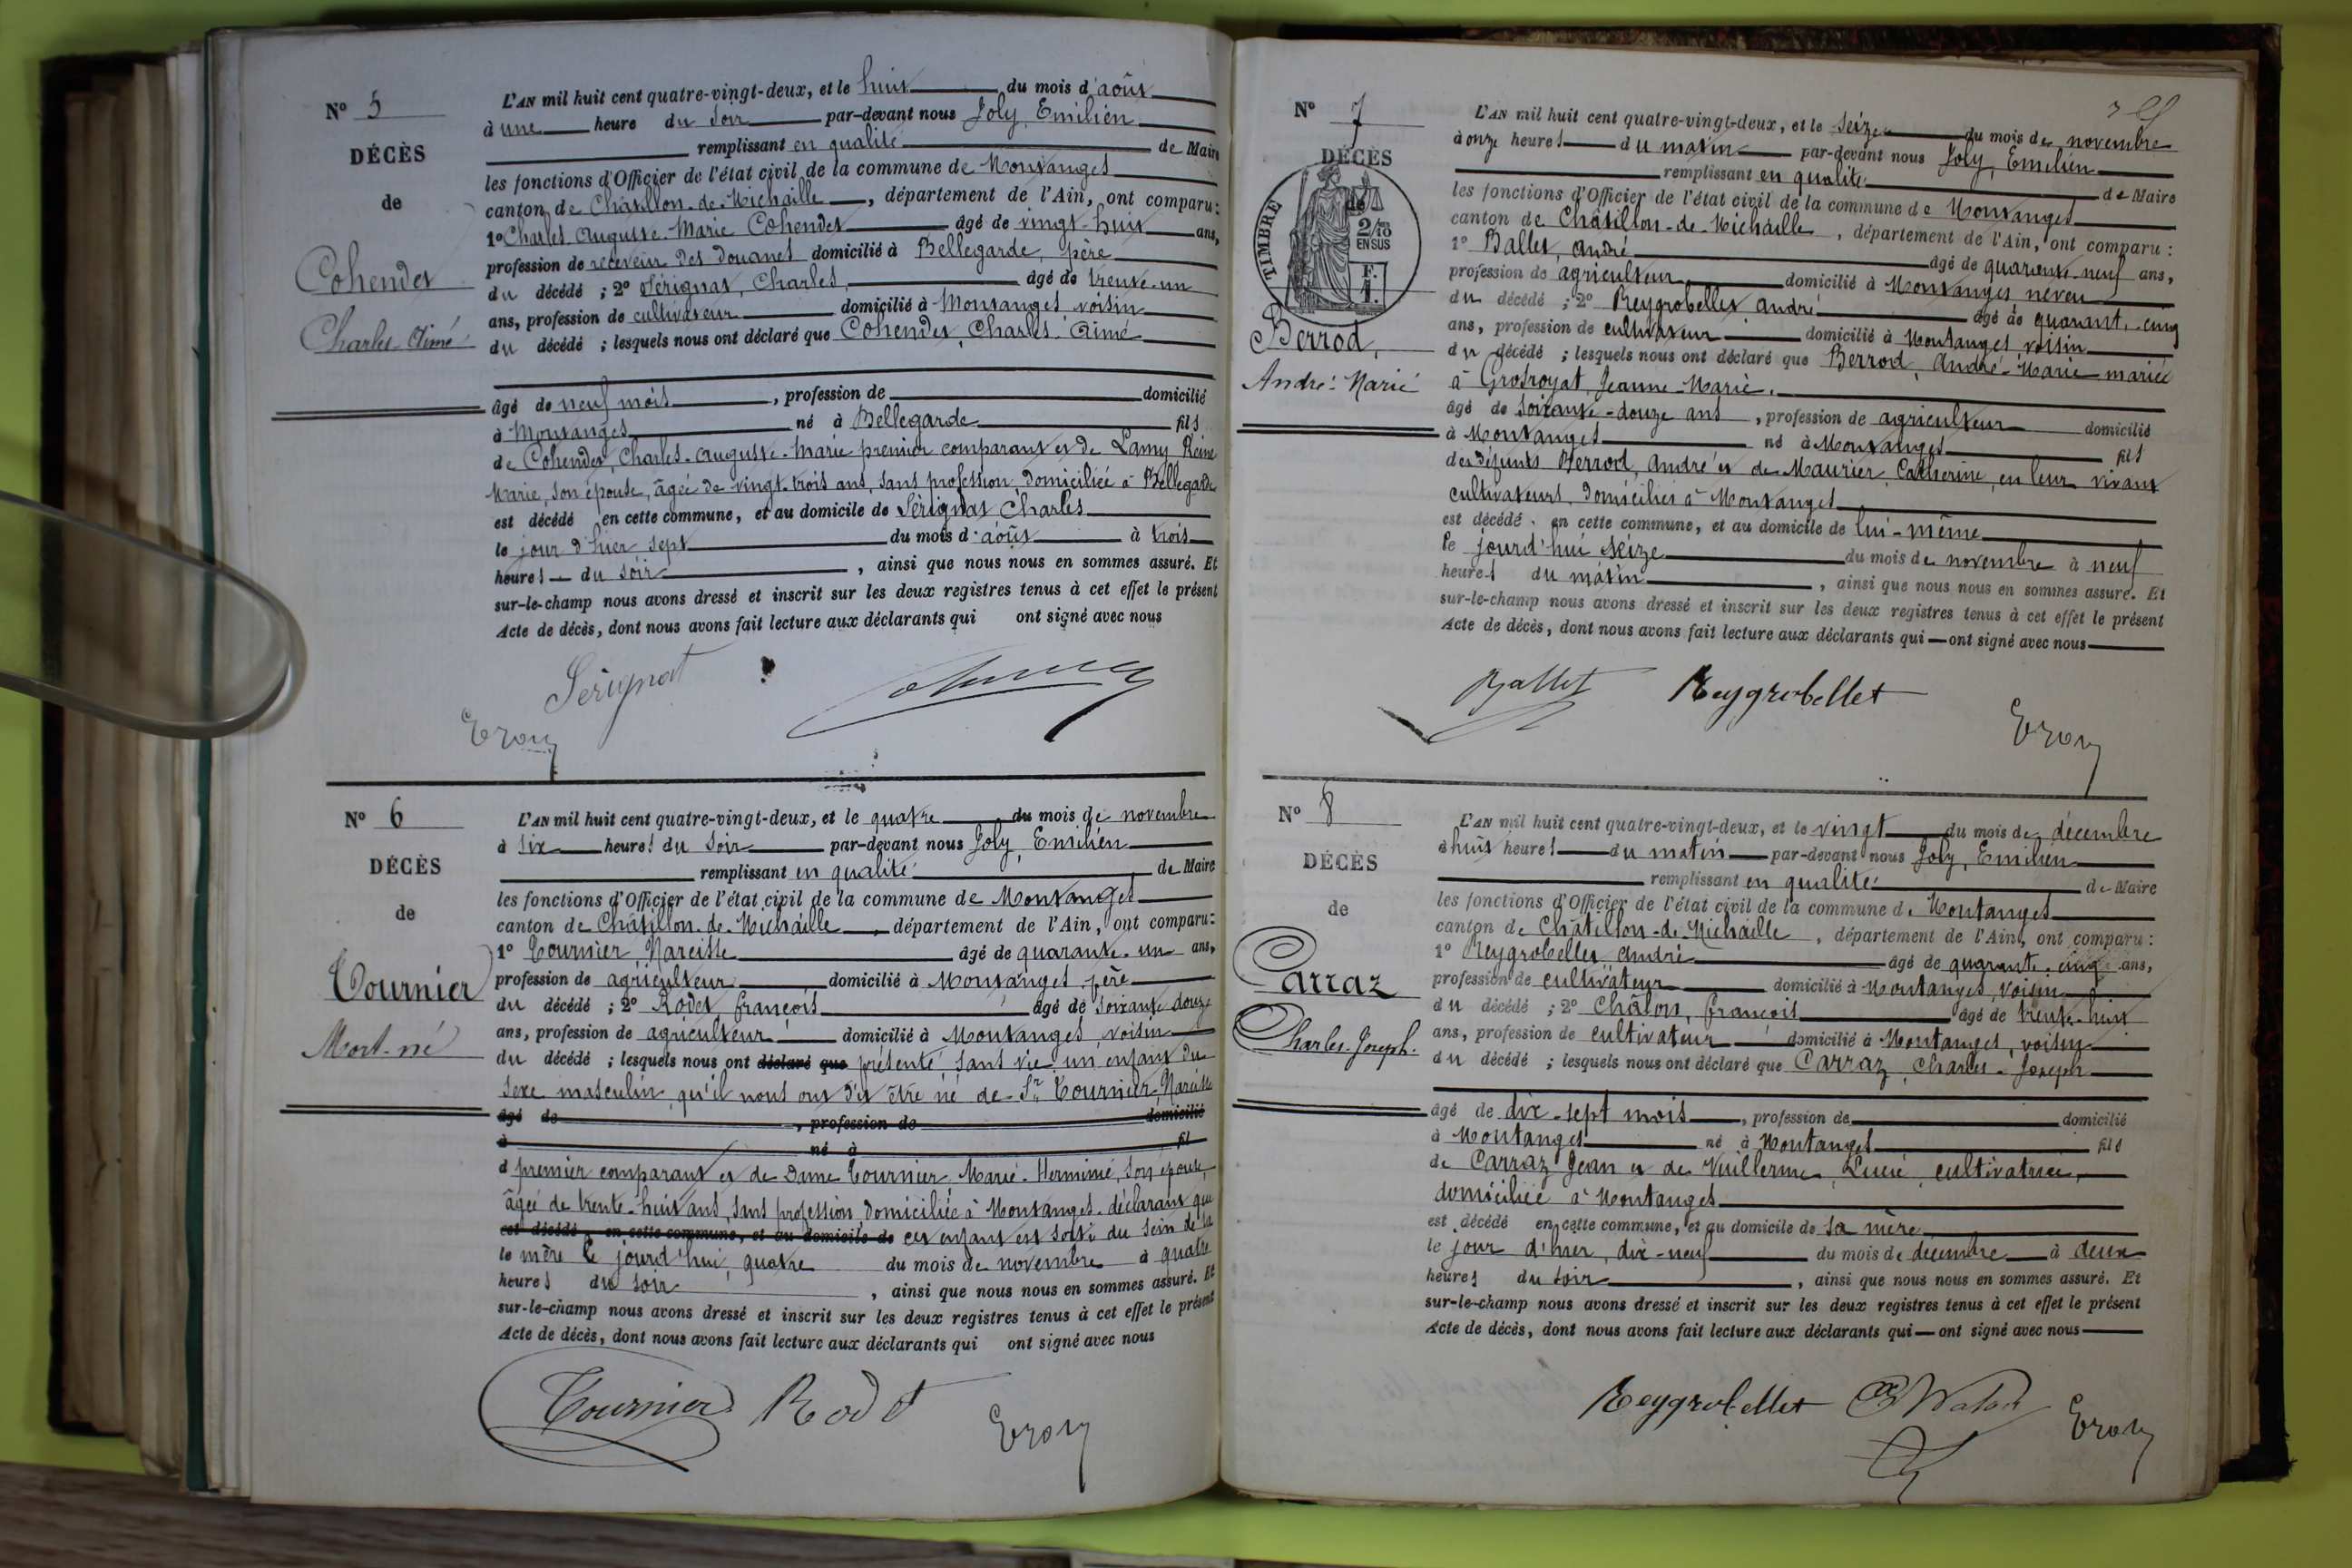 N° 5
DÉCÈS
de
Cohendet
Charles Aimé
L'AN mil huit cent quatre-vingt-deux, et le huit du mois d'août
à une heure du soir par-devant nous Joly, Emilien
remplissant en qualité de Maire
les fonctions d'Officier de l'état civil de la commune de Montanges
canton de Châtillon-de-Michaille, département de l'Ain, ont comparu :
1° Charles Auguste Marie Cohendet âgé de vingt-huit ans,
profession de receveur des douanes domicilié à Bellegarde, père
du décédé ; 2° Sérignat, Charles, âgé de trente-un
ans, profession de cultivateur domicilié à Montanges voisin
du décédé ; lesquels nous ont déclaré que Cohendet, Charles Aimé
âgé de neuf mois, profession de domicilié
à Montanges né à Bellegarde fils
de Cohendet, Charles-Auguste-Marie premier comparant et de Lamy Reine
Marie, son épouse, âgée de vingt-trois ans, sans profession, domiciliée à Bellegarde
est décédé en cette commune, et au domicile de Sérignat Charles
le jour d'hier sept du mois d'août à trois
heures du soir, ainsi que nous nous en sommes assuré. Et
sur-le-champ nous avons dressé et inscrit sur les deux registres tenus à cet effet le présent
Acte de décès, dont nous avons fait lecture aux déclarants qui ont signé avec nous
Serignat
N° 6
DÉCÈS
de
Tournier
Mort-né
L'AN mil huit cent quatre-vingt-deux, et le quatre du mois de novembre
à six heures du soir par-devant nous Joly, Emilien
remplissant en qualité de Maire
les fonctions d'Officier de l'état civil de la commune de Montanges
canton de Châtillon-de-Michaille, département de l'Ain, ont comparu :
1° Tournier, Narcisse âgé de quarante-un ans,
profession de agriculteur domicilié à Montanges père
du décédé ; 2° Rodet, françois âgé de soixante-douze
ans, profession de agriculteur domicilié à Montanges, voisin
du décédé ; lesquels nous ont déclaré que présenté sans vie un enfant du
sexe masculin qu'il nous ont dit être né de Sr Tournier, Narcisse
âgé de , profession de domicilié
à né à fil
d premier comparant et de Dame Tournier, Marie-Herminie, son épouse,
âgée de trente-huit ans, sans profession, domiciliée à Montanges, déclarant que
est décédé en cette commune, et au domicile de cet enfant est sorti du sein de sa
le mère le jourd'hui, quatre du mois de novembre à quatre
heures du soir, ainsi que nous nous en sommes assuré. Et
sur-le-champ nous avons dressé et inscrit sur les deux registres tenus à cet effet le présent
Acte de décès, dont nous avons fait lecture aux déclarants qui ont signé avec nous
Tournier Rodet
N° 7
DÉCÈS
de
TIMBRE
2/10
EN SUS
F.
1.
Berrod,
André-Marie
L'AN mil huit cent quatre-vingt-deux, et le seize du mois de novembre
à onze heures du matin par-devant nous Joly, Emilien
remplissant en qualité de Maire
les fonctions d'Officier de l'état civil de la commune de Montanges
canton de Châtillon-de-Michaille, département de l'Ain, ont comparu :
1° Ballet, André âgé de quarante-neuf ans,
profession de agriculteur domicilié à Montanges neveu
du décédé ; 2° Reygrobellet André âgé de quarante-cinq
ans, profession de cultivateur domicilié à Montanges voisin
du décédé ; lesquels nous ont déclaré que Berrod, André-Marie marié
à Grosroyat, Jeanne-Marie.
âgé de soixante-douze ans, profession de agriculteur domicilié
à Montanges né à Montanges fils
des défunts Berrod, André et de Maurier, Catherine, en leur vivant
cultivateurs, domiciliés à Montanges
est décédé en cette commune, et au domicile de lui-même
le jourd'hui seize du mois de novembre à neuf
heures du matin, ainsi que nous nous en sommes assuré. Et
sur-le-champ nous avons dressé et inscrit sur les deux registres tenus à cet effet le présent
Acte de décès, dont nous avons fait lecture aux déclarants qui ont signé avec nous
Ballet Reygrobellet
N° 8
DÉCÈS
de
Carraz
Charles-Joseph.
L'AN mil huit cent quatre-vingt-deux, et le vingt du mois de décembre
à huit heures du matin par-devant nous Joly, Emilien
remplissant en qualité de Maire
les fonctions d'Officier de l'état civil de la commune de Montanges
canton de Châtillon-de-Michaille, département de l'Ain, ont comparu :
1° Reygrobellet André âgé de quarante-cinq ans,
profession de cultivateur domicilié à Montanges, voisin
du décédé ; 2° Châlon, françois âgé de trente-huit
ans, profession de cultivateur domicilié à Montanges, voisin
du décédé ; lesquels nous ont déclaré que Carraz, Charles-Joseph
âgé de dix-sept mois, profession de domicilié
à Montanges né à Montanges fils
de Carraz Jean et de Vuillerme, Lucie, cultivatrice,
domiciliée à Montanges
est décédé en cette commune, et au domicile de sa mère
le jour d'hier, dix-neuf du mois de décembre à deux
heures du soir, ainsi que nous nous en sommes assuré. Et
sur-le-champ nous avons dressé et inscrit sur les deux registres tenus à cet effet le présent
Acte de décès, dont nous avons fait lecture aux déclarants qui ont signé avec nous
Reygrobellet